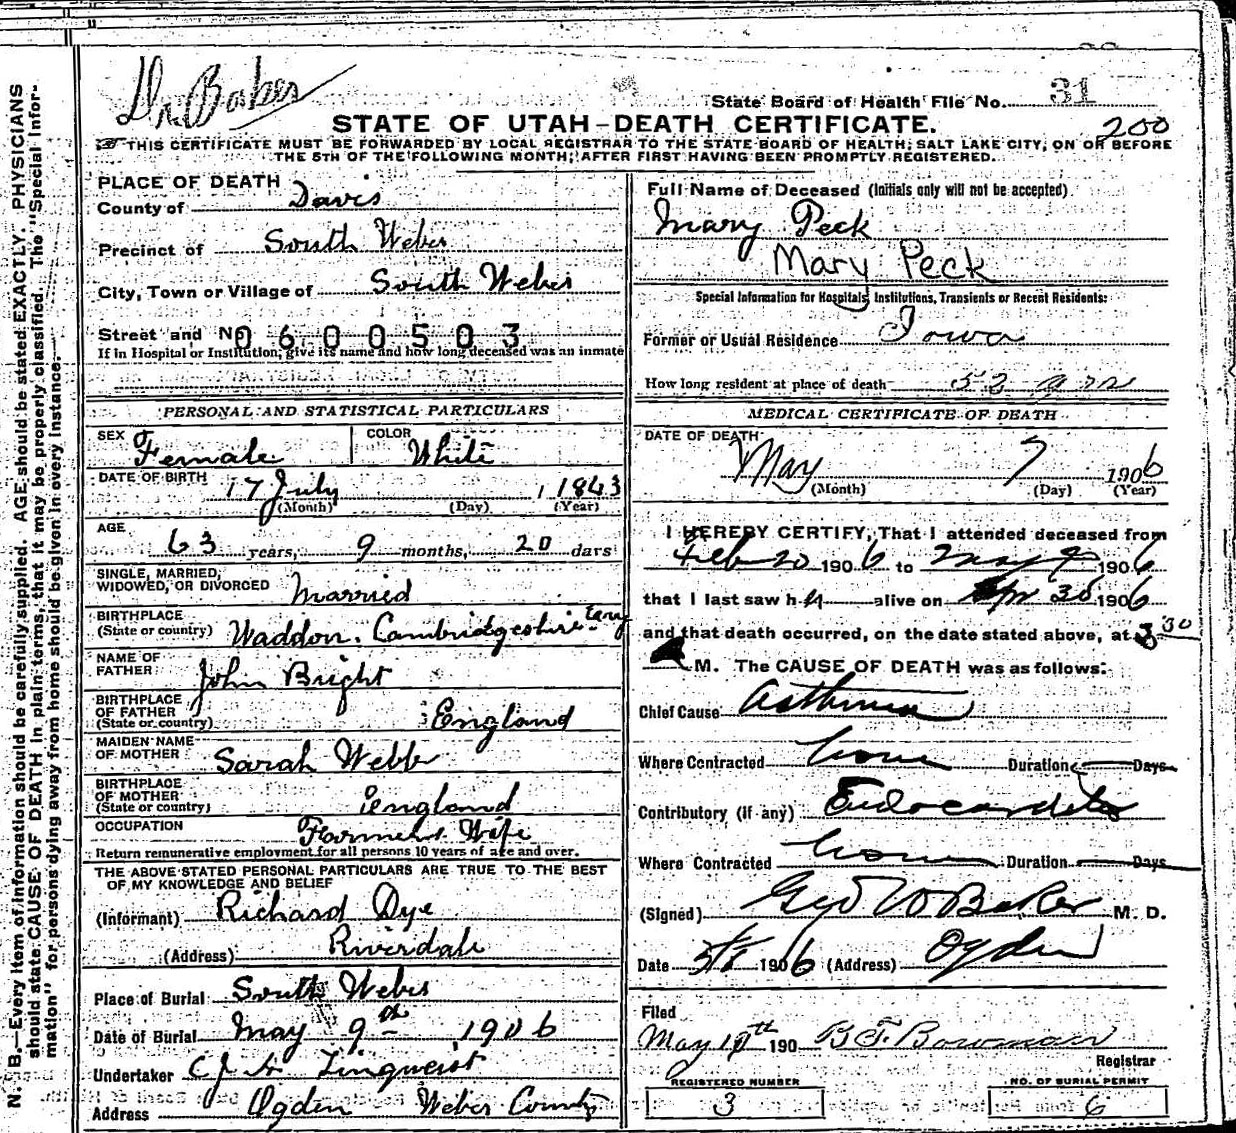 Dr Baker
State Board of Health File No. 31
STATE OF UTAH-DEATH CERTIFICATE.
200
THIS CERTIFICATE MUST BE FORWARDED BY LOCAL REGISTRAR TO THE STATE BOARD OF HEALTH, SALT LAKE CITY, ON OR BEFORE
THE 5TH OF THE FOLLOWING MONTH, AFTER FIRST HAVING BEEN PROMPTLY REGISTERED.
N. B.—Every item of information should be carefully supplied. AGE should be stated EXACTLY. PHYSICIANS
should state CAUSE OF DEATH in plain terms, that it may be properly classified. The "Special Infor-
mation" for persons dying away from home should be given in every instance.
PLACE OF DEATH
County of Davis
Precinct of South Weber
City, Town or Village of South Weber
Street and No 0600503
If in Hospital or Institution, give its name and how long deceased was an inmate
PERSONAL AND STATISTICAL PARTICULARS
SEX Female COLOR White
DATE OF BIRTH 17 July , 1843
(Month) (Day) (Year)
AGE
63 years, 9 months, 20 days
SINGLE, MARRIED,
WIDOWED, OR DIVORCED Married
BIRTHPLACE
(State or country) Waddon. Cambridgeshire Eng
NAME OF
FATHER John Bright
BIRTHPLACE
OF FATHER
(State or country) England
MAIDEN NAME
OF MOTHER Sarah Webb
BIRTHPLACE
OF MOTHER
(State or country) England
OCCUPATION Farmers Wife
Return remunerative employment for all persons 10 years of age and over.
THE ABOVE STATED PERSONAL PARTICULARS ARE TRUE TO THE BEST
OF MY KNOWLEDGE AND BELIEF
(Informant) Richard Dye
(Address) Riverdale
Place of Burial South Weber
Date of Burial May 9th 1906
Undertaker Linquist
Address Ogden Weber County
Full Name of Deceased (Initials only will not be accepted)
Mary Peck
Mary Peck
Special Information for Hospitals, Institutions, Transients or Recent Residents:
Former or Usual Residence Iowa
How long resident at place of death 52 yrs
MEDICAL CERTIFICATE OF DEATH
DATE OF DEATH
May 7 1906
(Month) (Day) (Year)
I HEREBY CERTIFY, That I attended deceased from
Feb 20 1906 to May 1906
that I last saw her alive on Apr 30 1906
and that death occurred, on the date stated above, at 3 30
A M. The CAUSE OF DEATH was as follows:
Chief Cause Asthma
Where Contracted home Duration Days
Contributory (if any) Endocarditis
Where Contracted home Duration Days
(Signed) Geo W Baker M. D.
Date 5/8 1906 (Address) Ogden
Filed
May 10th 190 B. F. Bowman
Registrar
REGISTERED NUMBER
3
NO. OF BURIAL PERMIT
6